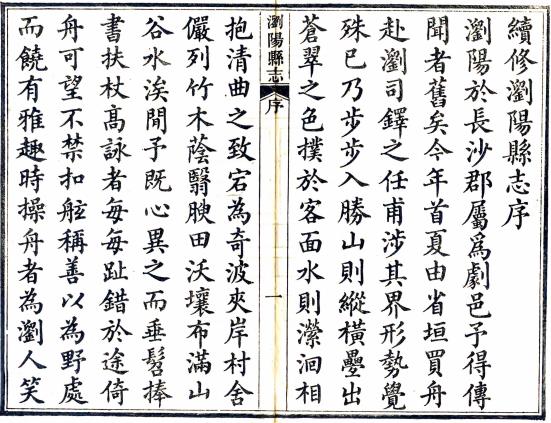 續修瀏陽縣志序
瀏陽於長沙郡屬爲劇邑予得傳
聞者舊矣今年首夏由省垣買舟
赴瀏司鐸之任甫涉其界形勢覺
殊已乃步步入勝山則縱橫疊出
蒼翠之色撲於客面水則瀠洄相
瀏陽縣志
序
一
抱清曲之致宕為奇波夾岸村舍
儼列竹木蔭翳腴田沃壤布滿山
谷水涘閒予既心異之而垂髫捧
書扶杖高詠者每每趾錯於途倚
舟可望不禁扣舷稱善以為野處
而饒有雅趣時操舟者為瀏人笑